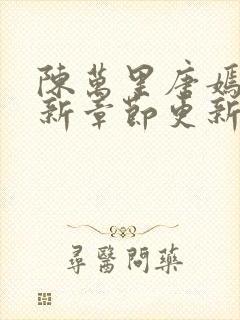 陳萬里唐嫣
新章節更新
尋醫問藥